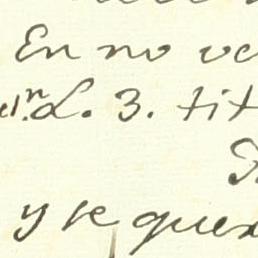 En no ve
el.n L. 3. tit
y se quex